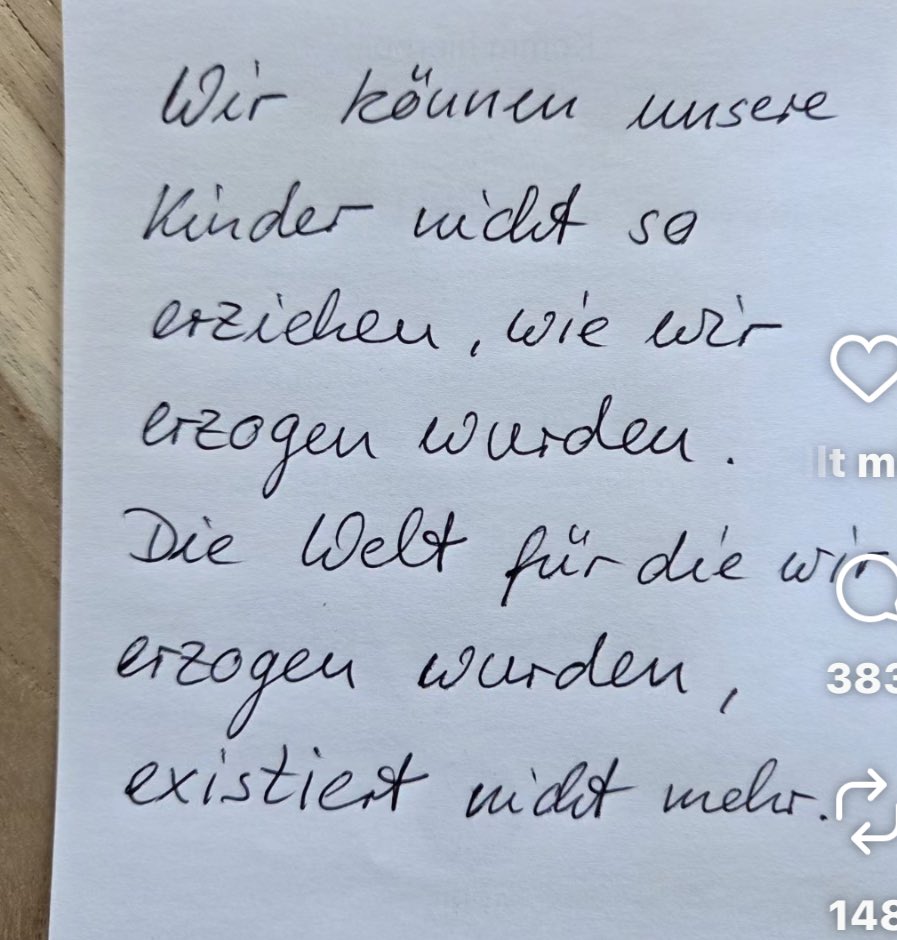 Wir können unsere
Kinder nicht so
erziehen, wie wir
erzogen wurden.
Die Welt für die wir
erzogen wurden,
existiert nicht mehr.
lt m
383
148